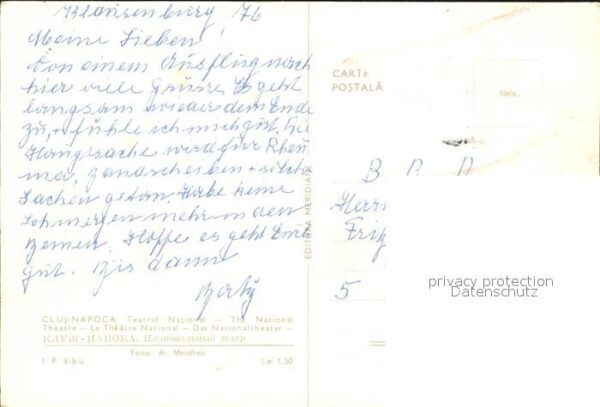 Klausenburg 76
Meine Lieben!
Von einem Ausflug nach
hier viele Grüsse. Es geht
langsam wieder dem Ende
zu, + fühle ich mich gut. Die
Hauptsache wird für Rheu
ma, Bandscheiben + solche
Sachen getan. Habe keine
Schmerzen mehr in den
Beinen. Hoffe es geht Euch
gut. Bis dann
CARTE
POȘTALĂ
5966
B R D
Herrn
Fritz
5
EDITURA MERIDIANE
privacy protection
Datenschutz
CLUJ-NAPOCA. Teatrul Național — The National
Theatre — Le Théâtre National — Das Nationaltheater —
КЛУЖ-НАПОКА. Национальный театр
Foto: Al. Mendrea
I. P. Sibiu Lei 1,50